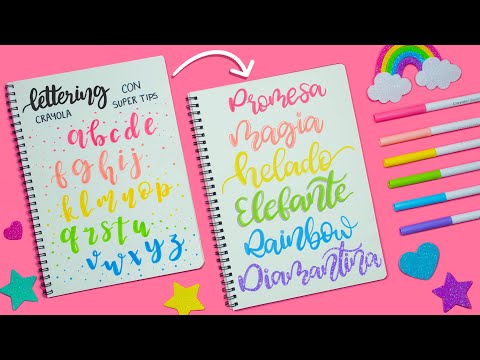 lettering
CON
SUPER TIPS
CRAYOLA
abcde
fghij
klmnop
qrstu
vwxyz
Promesa
magia
helado
Elefante
Rainbow
Diamantina